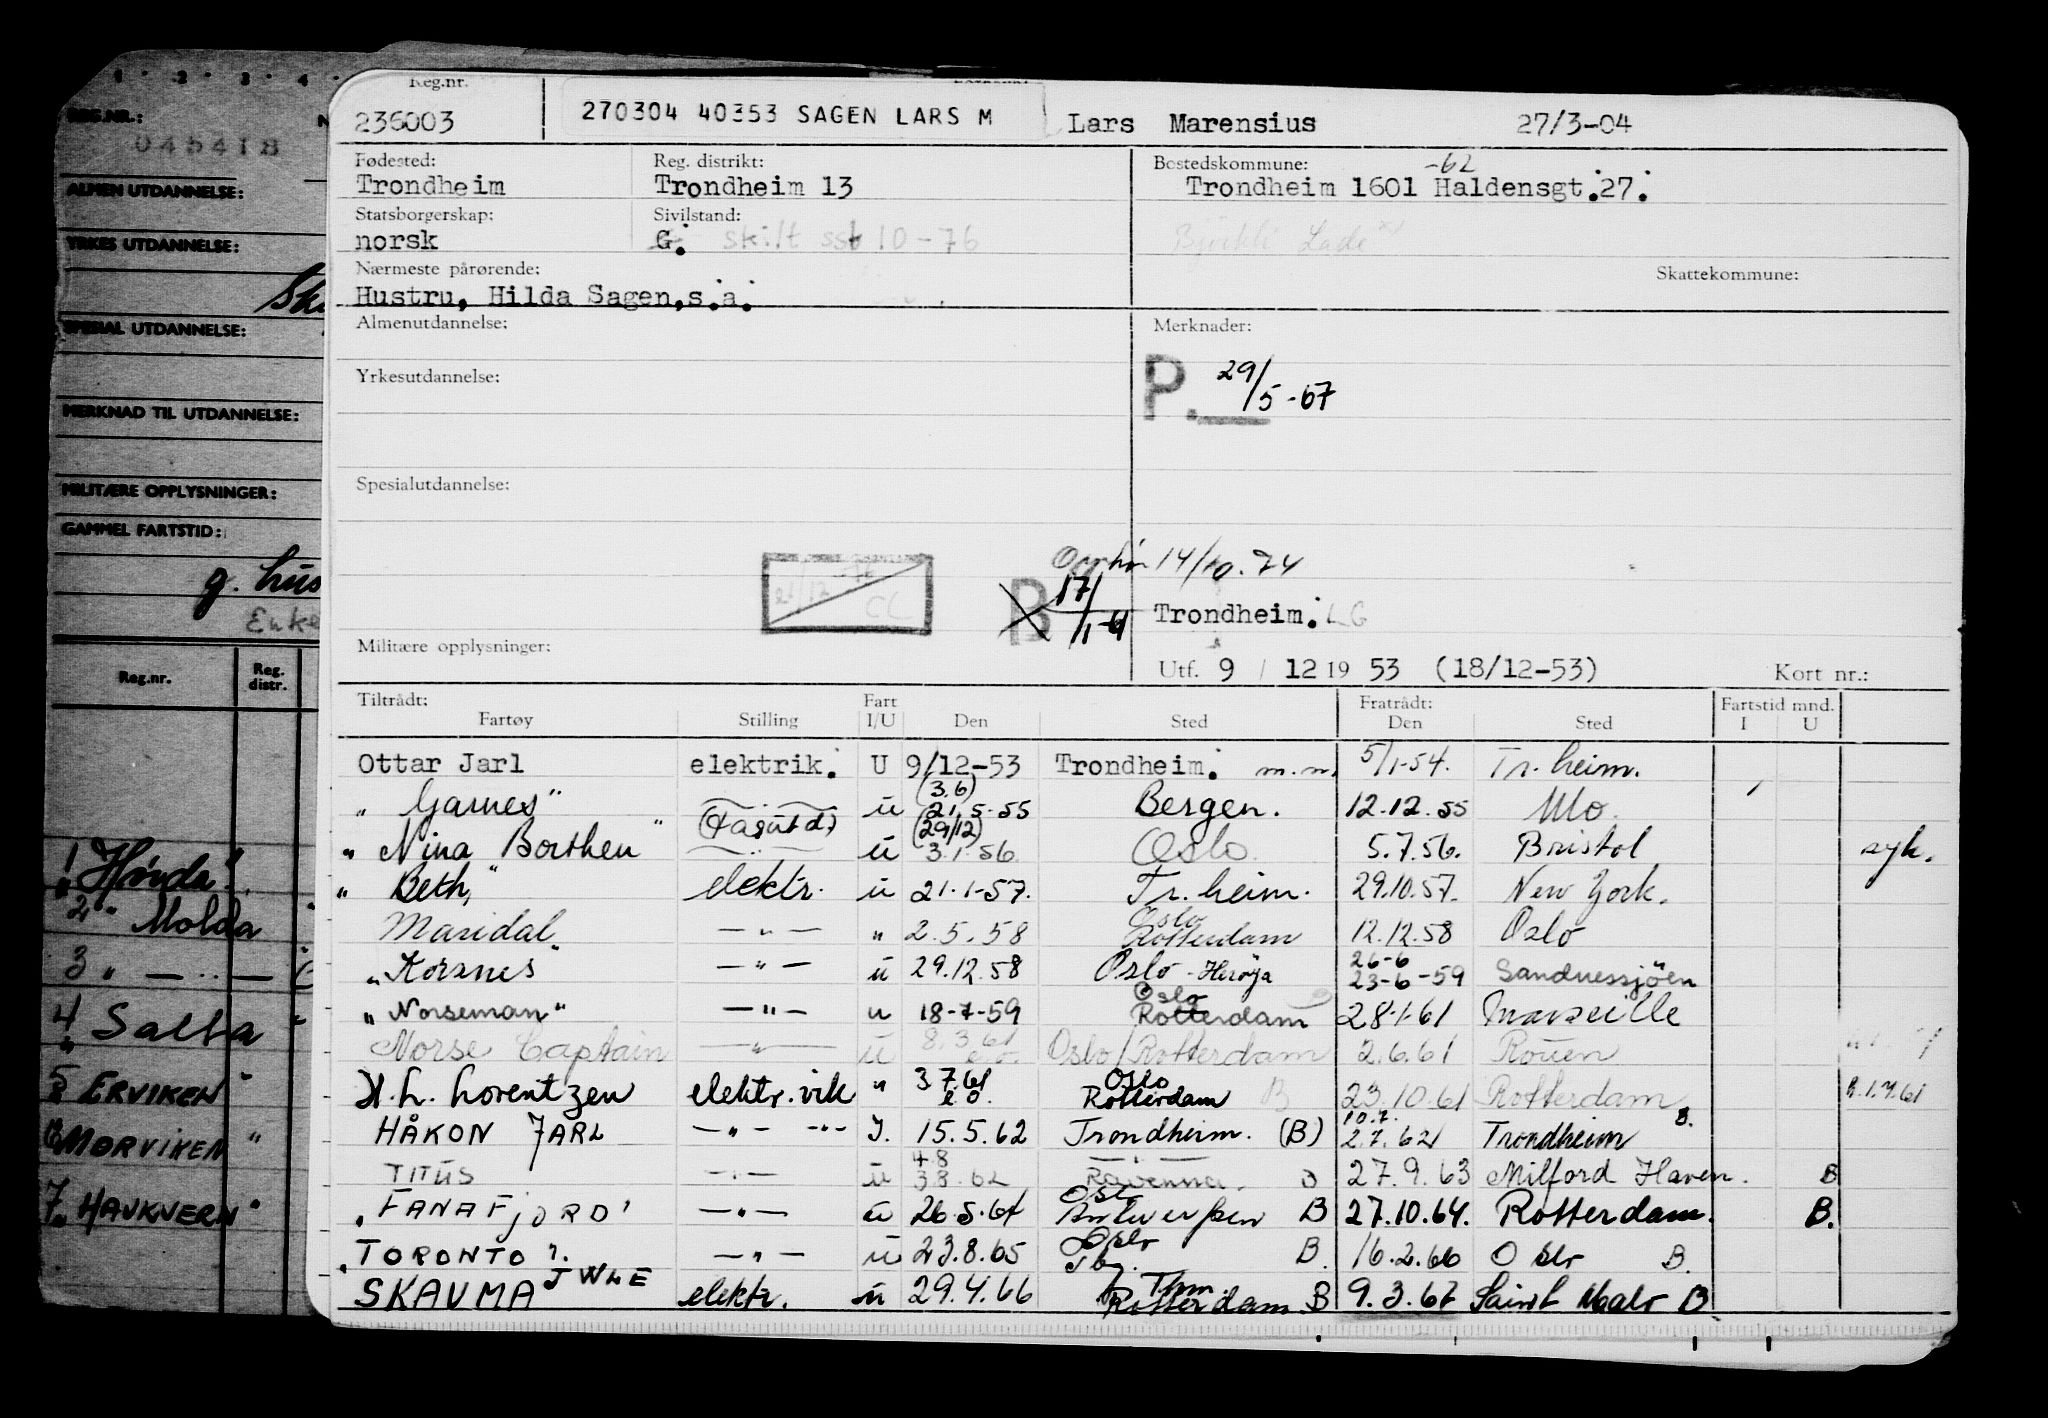 1 2 3 4
REG.NR.: N
045418
ALMEN UTDANNELSE:
YRKES UTDANNELSE:
SPESIAL UTDANNELSE:
MERKNAD TIL UTDANNELSE:
MILITÆRE OPPLYSNINGER:
GAMMEL FARTSTID:
g. hus
Enke
Reg.nr. Reg. distr.
1 " Hørda "
2 " Molda "
3 " — " —
4 " Salta "
5 " ERVIKEN "
6 MORVIKEN "
7 " HAUKVERN "
Reg.nr.
236003 270304 40353 SAGEN LARS M Lars Marensius 27/3-04
Fødested: Reg. distrikt: Bostedskommune: -62
Trondheim Trondheim 13 Trondheim 1601 Haldensgt. 27.
Statsborgerskap: Sivilstand:
norsk G. skilt sst 10-76 Lade
Nærmeste pårørende: Skattekommune:
Hustru, Hilda Sagen, s.a.
Almenutdannelse: Merknader:
P. 29/5-67
Yrkesutdannelse:
Spesialutdannelse:
Opphør 14/10.74
B 17/1-61 Trondheim. LG
CL
Militære opplysninger:
Utf. 9 / 12 19 53 (18/12-53) Kort nr.:
Tiltrådt: Fart Fratrådt: Fartstid mnd.
Fartøy Stilling I/U Den Sted Den Sted I U
Ottar Jarl elektrik. U 9/12-53 Trondheim. m.m. 5/1-54. Tr.heim.
" Garnes " (fagutd) u (3.6) 21.5-55 Bergen. 12.12.55 Mo.
" Nina Borthen " u (29/12) 3.1.56 Oslo 5.7.56. Bristol syk.
" Beth " elektr. u 21.1-57. Tr.heim. 29.10.57. New York.
Maridal " — " — " 2.5.58 Oslo Rotterdam 12.12.58 Oslo
" Korsnes " — " — u 29.12.58 Oslo - Herøya 26-6 23-6-59 Sandnessjöen
" Norseman " — " — u 18-7-59 Oslo Rotterdam 28.1-61 Marseille
Norse Captain — " — u 8.3.61 e.o. Oslo/Rotterdam 2.6.61 Rouen
H.h. Lorentzen elektr.vik " 3.7.61 e.o. Oslo Rotterdam B 23.10.61 Rotterdam B.1.7.61
HÅKON JARL — " — " — I. 15.5.62 Trondheim. (B) 10.7. 2.7.62 Trondheim B.
TITUS — " — u 4.8 3.8.62 Ravenna. B 27.9.63 Milford Haven. B
" FANAFJORD " — " — u 26.5.64 Oslo Antwerpen B 27.10.64. Rotterdam. B.
" TORONTO ". — " — u 23.8.65 Oslo B. 16.2.66 Oslo B.
SKAUMA JWLE elektr. u 29.4.66 Thm. Rotterdam B 9.3.67 Saint Malo B